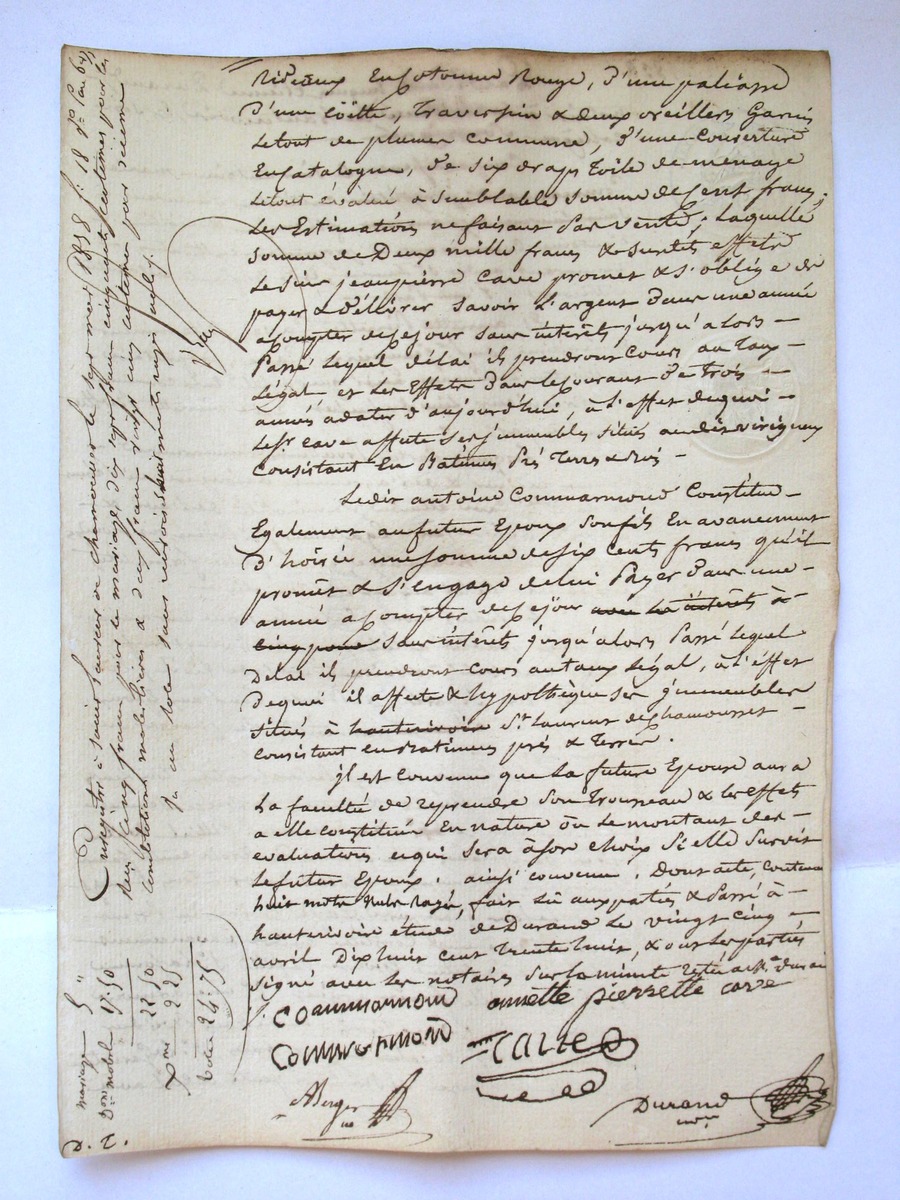 Rideaux En Cotonne Rouge, D'une paliasse
D'une Coitte, Traversin & deux oreillers Garnis
Letout de plumes commune, D'une Couverture
En Catalogne, De six draps Toile de menage
Letout évalué à semblable somme de Cent francs,
Les Estimations ne faisant Pas vente; Laquelle
Somme de Deux mille francs & susdits effets
Le Sieur jeanpierre Cave promet & s'oblige de
payer & délivrer Savoir L'argent Dans une année
a Compter de Cejour sans intérêts jusqu'alors –
Passé lequel délai ils prendront Cours au Taux –
Légal, et Les Effets Dans le Courant De trois –
années a dater d'aujourd'hui, à l'effet dequoi –
Lesr. Cave affecte ses jmmeubles situés virigneux
Consistant En Batimens Prés Terres & Bois –
Ledit antoine Commarmond Constitue –
Egalement au futur Epoux Son fils En avancement
D'hoirie une Somme de Six Cents francs qu'il
promet & S'engage de lui Payer Dans une –
année a Compter de Cejour avec les intérêts à –
cinq pour Sans intérêts jusqu'alors Passé Lequel
Delai ils prendront Cours au taux Légal, à l'effet
Dequoi il affecte & hypothèque Ses jmmeubles
situés à hauterivoire St. Laurent de Chamousset –
Consistant En Batimens prés & Terres.
jl est Convenu que La future Epouse aura
La faculté de reprendre Son Trousseau & les effets
a elle Constitués En nature ou Le montant des –
évaluations, ce qui Sera à Son Choix Si elle Survit
Le futur Epoux. ainsi Convenu. Dont acte, Contenant
huit mots Nuls Rayés, fait Lu aux parties & Passé à –
hauterivoire étude de Durand Le vingt Cinq –
avril Dix huit Cent Trente huit, & ont Les parties
Signé avec les notaires Sur la minute restée a Me. Durand
Commarmond annette pierrette cave
Commarmond Cave
Berger Durand
nre
Enregistré à Saint Laurent de Chamousset le sept mai 1838 f. 18
Reçu Cinq francs pour le mariage, dix sept francs cinquante centimes pour les
Constitutions mobilières & deux francs vingt cinq centimes pour décime
mariage 5 "
Don mobil 17.50
22 50
Xme 2 25
24.75
D. T.